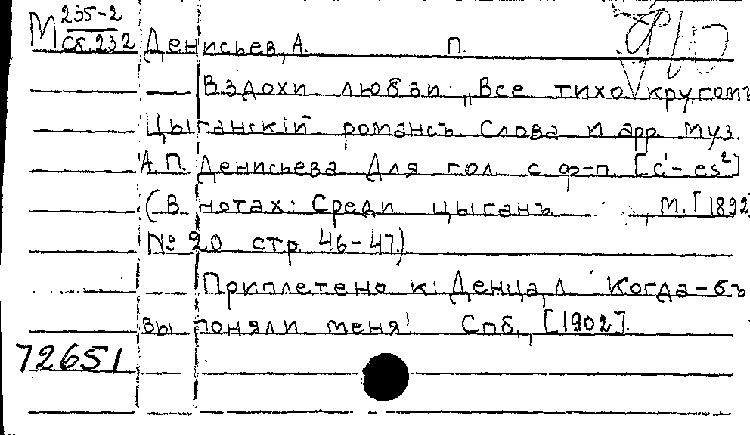 М 235-2
Сб.232 Денисьев, А. П.
Вздохи любви „Все тихо кругом
Цыганскій романсъ Слова и арр муз.
А.П. Денисьева Для гол с ф-п. [c'-es²]
(В нотах: Среди цыганъ , М. [1892
№ 20 стр. 46-47)
Приплетено к: Денца, Л Когда-бъ
вы поняли меня! Спб., [1902].
72651